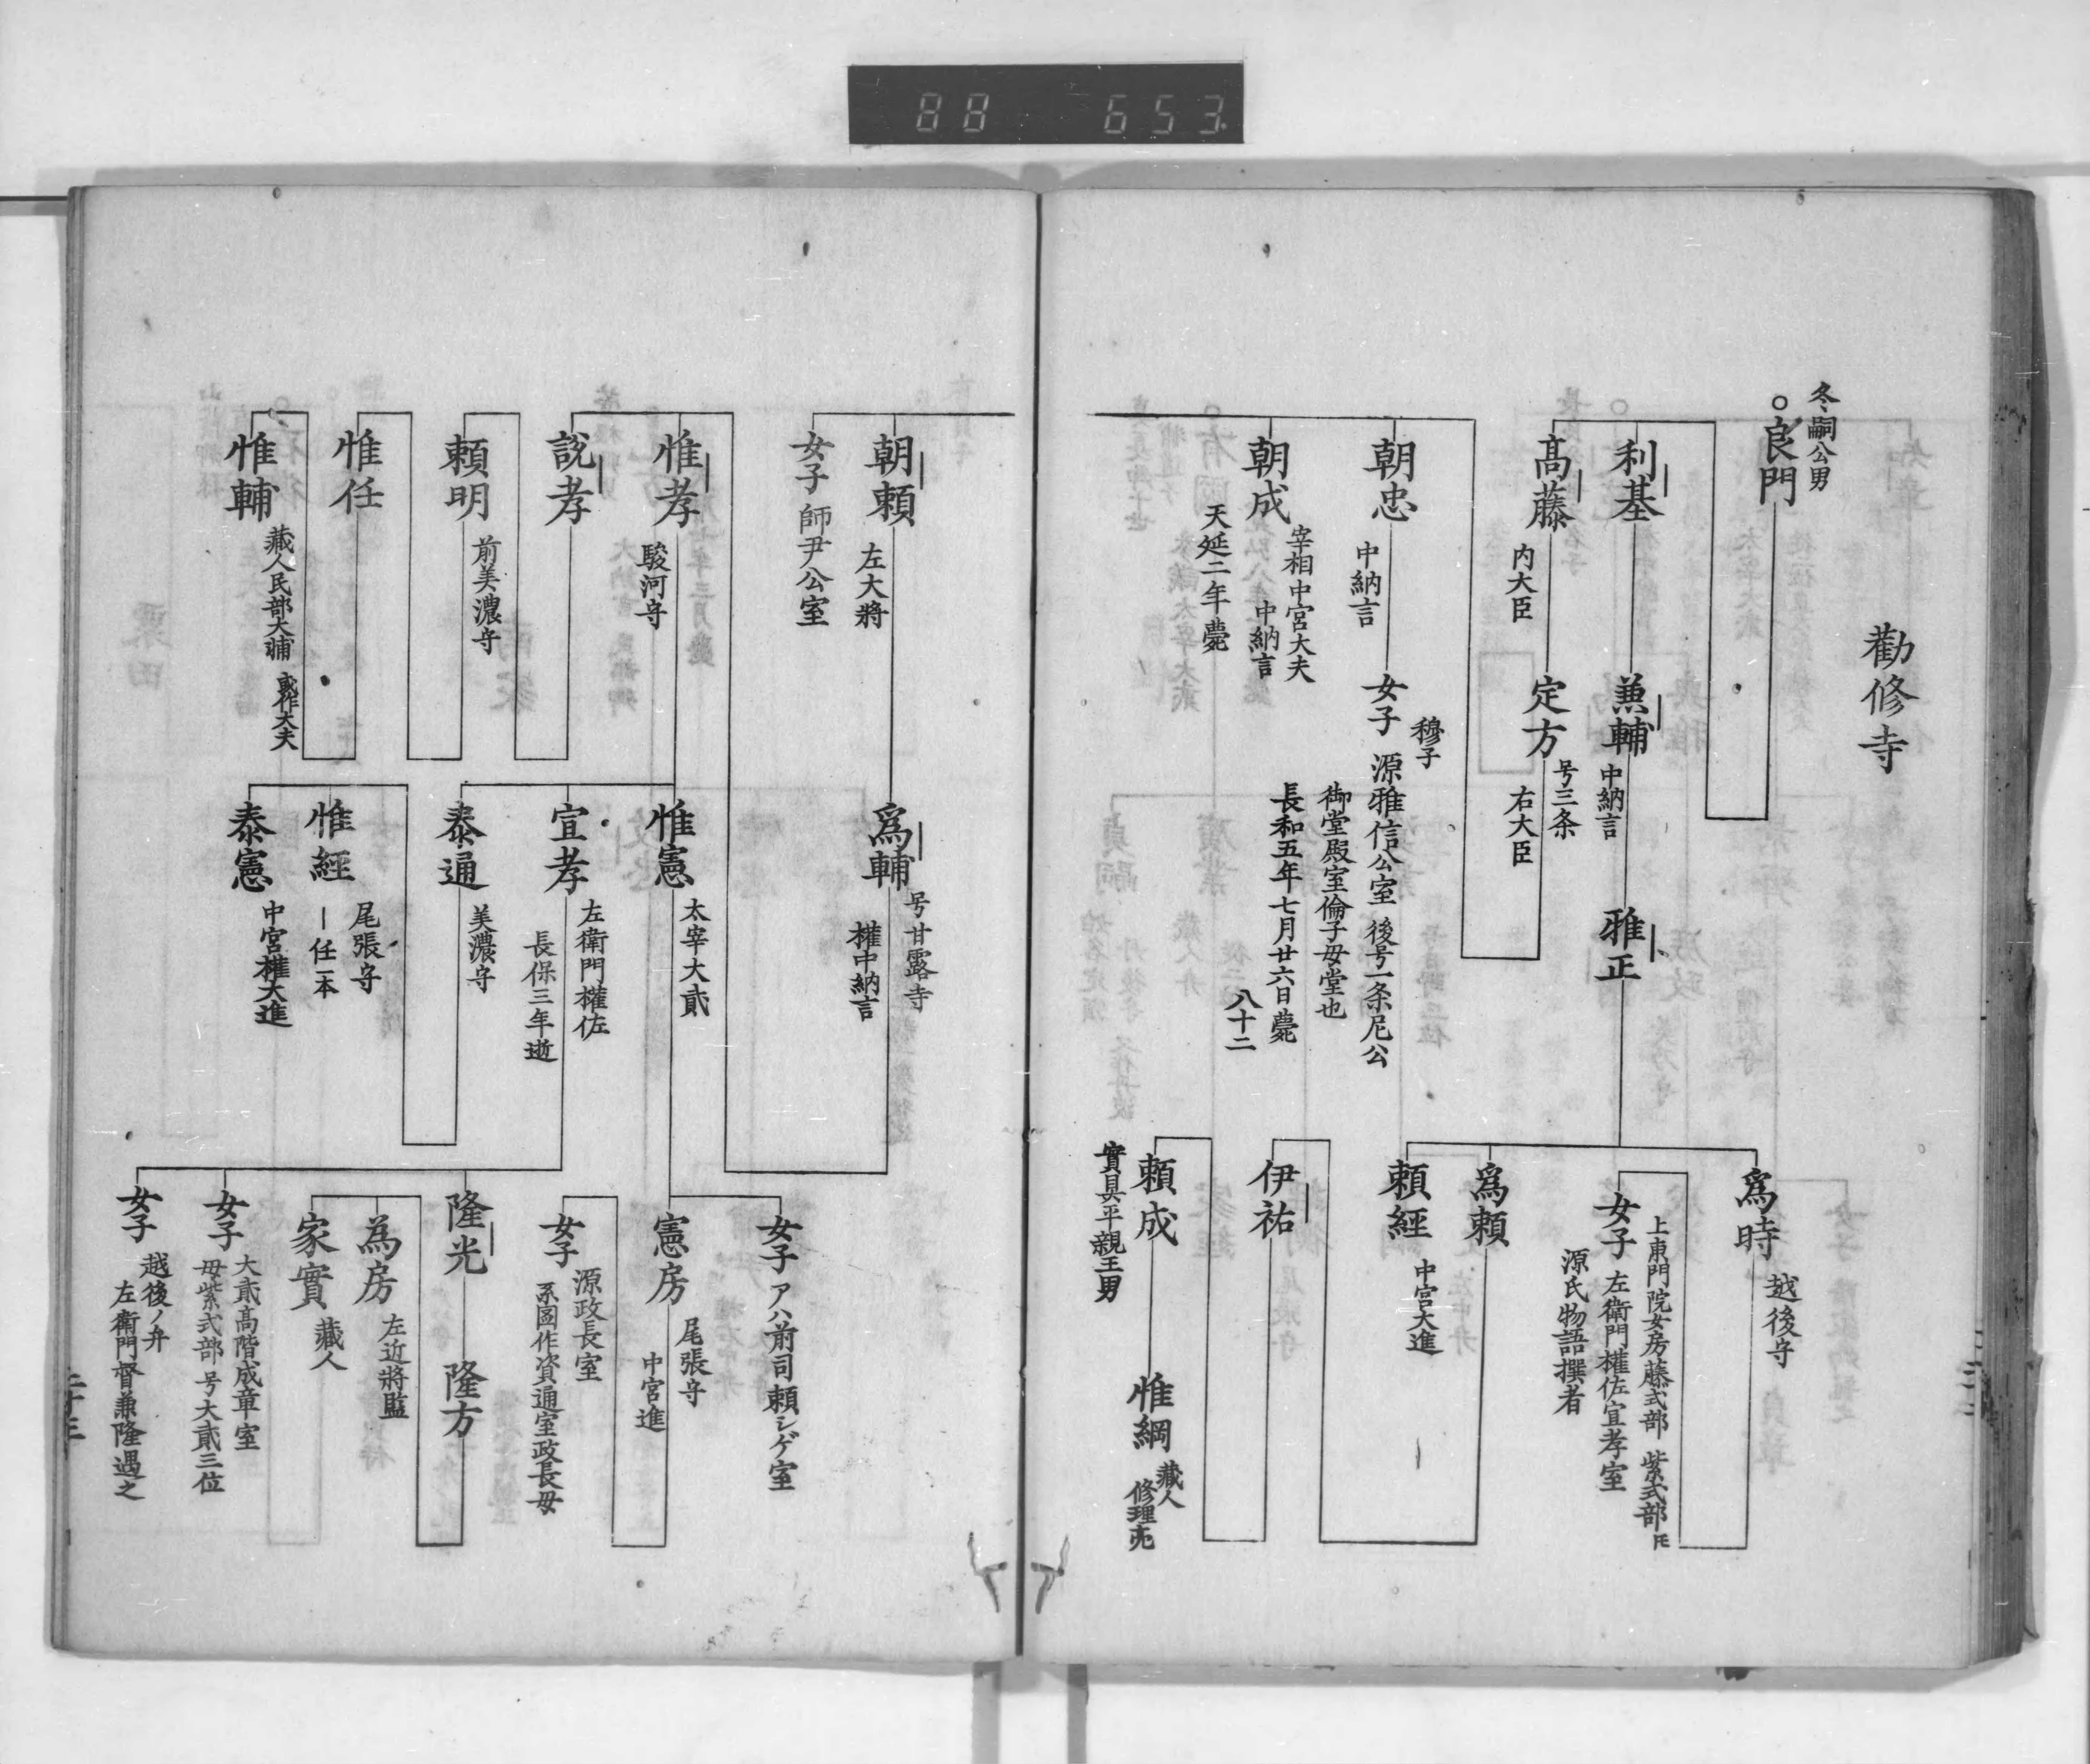 88 653
勸修寺
冬嗣公男
良門
利基
兼輔
中納言
雅正
為時
越後守
女子
上東門院女房藤式部 紫式部
左衛門權佐宣孝室
源氏物語撰者
為頼
頼經
中宮大進
伊祐
頼成
實具平親王男
惟綱
藏人
修理亮
高藤
内大臣
定方
号三条
右大臣
朝忠
中納言
女子
穆子
源雅信公室 後号一条尼公
御堂殿室倫子母堂也
長和五年七月廿六日薨
八十二
朝成
宰相中宮大夫
中納言
天延二年薨
朝頼
左大將
為輔
号甘露寺
權中納言
女子
師尹公室
惟孝
駿河守
惟憲
太宰大貳
女子
アハ前司頼シゲ室
憲房
尾張守
中宮進
女子
源政長室
系圖作資通室政長母
宣孝
左衛門權佐
長保三年逝
隆光
隆方
為房
左近將監
家實
藏人
女子
大貳高階成章室
母紫式部号大貳三位
女子
越後ノ弁
左衛門督兼隆遇之
説孝
頼明
前美濃守
惟任
惟輔
藏人民部大輔 或作大夫
泰通
美濃守
惟經
尾張守
一任一本
泰憲
中宮權大進